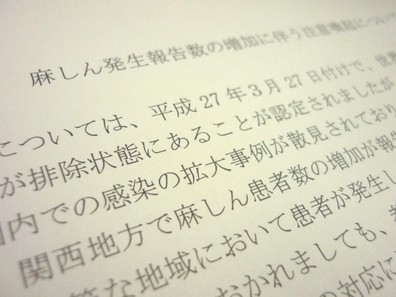 麻しん発生報告数の増加に伴う注意喚起について
については、平成27年3月27日付けで、世界
が排除状態にあることが認定されましたが
国内での感染の拡大事例が散見されており
関西地方で麻しん患者数の増加が報告
等な地域において患者が発生し
おかれましても、
の対応に